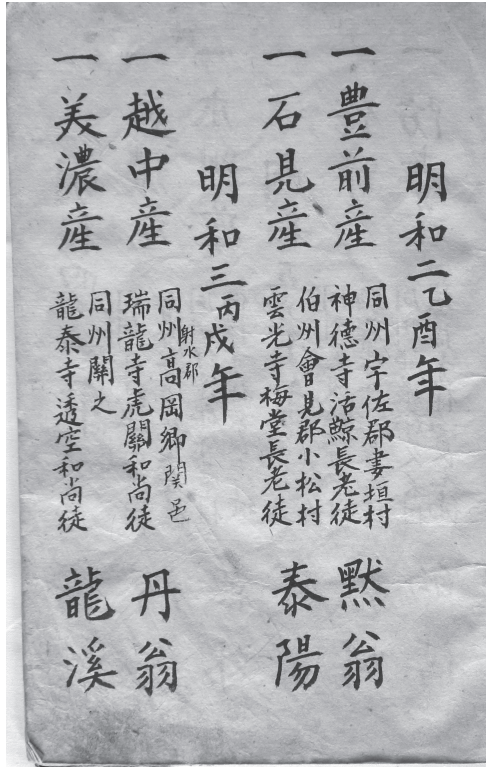 明和二乙酉年
一豊前産
同州宇佐郡妻垣村
神德寺活鯨長老徒
默翁
一石見産
伯州會見郡小松村
雲光寺梅堂長老徒
泰陽
明和三丙戌年
一越中産
射水郡
同州高岡郷関邑
瑞龍寺虎關和尚徒
丹翁
一美濃産
同州關之
龍泰寺透空和尚徒
龍溪